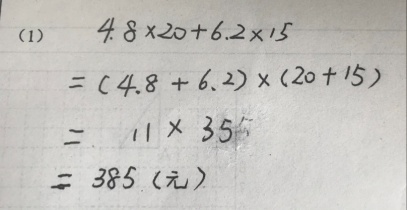 (1) 4.8×20+6.2×15
=(4.8+6.2)×(20+15)
= 11×35
=385(元)